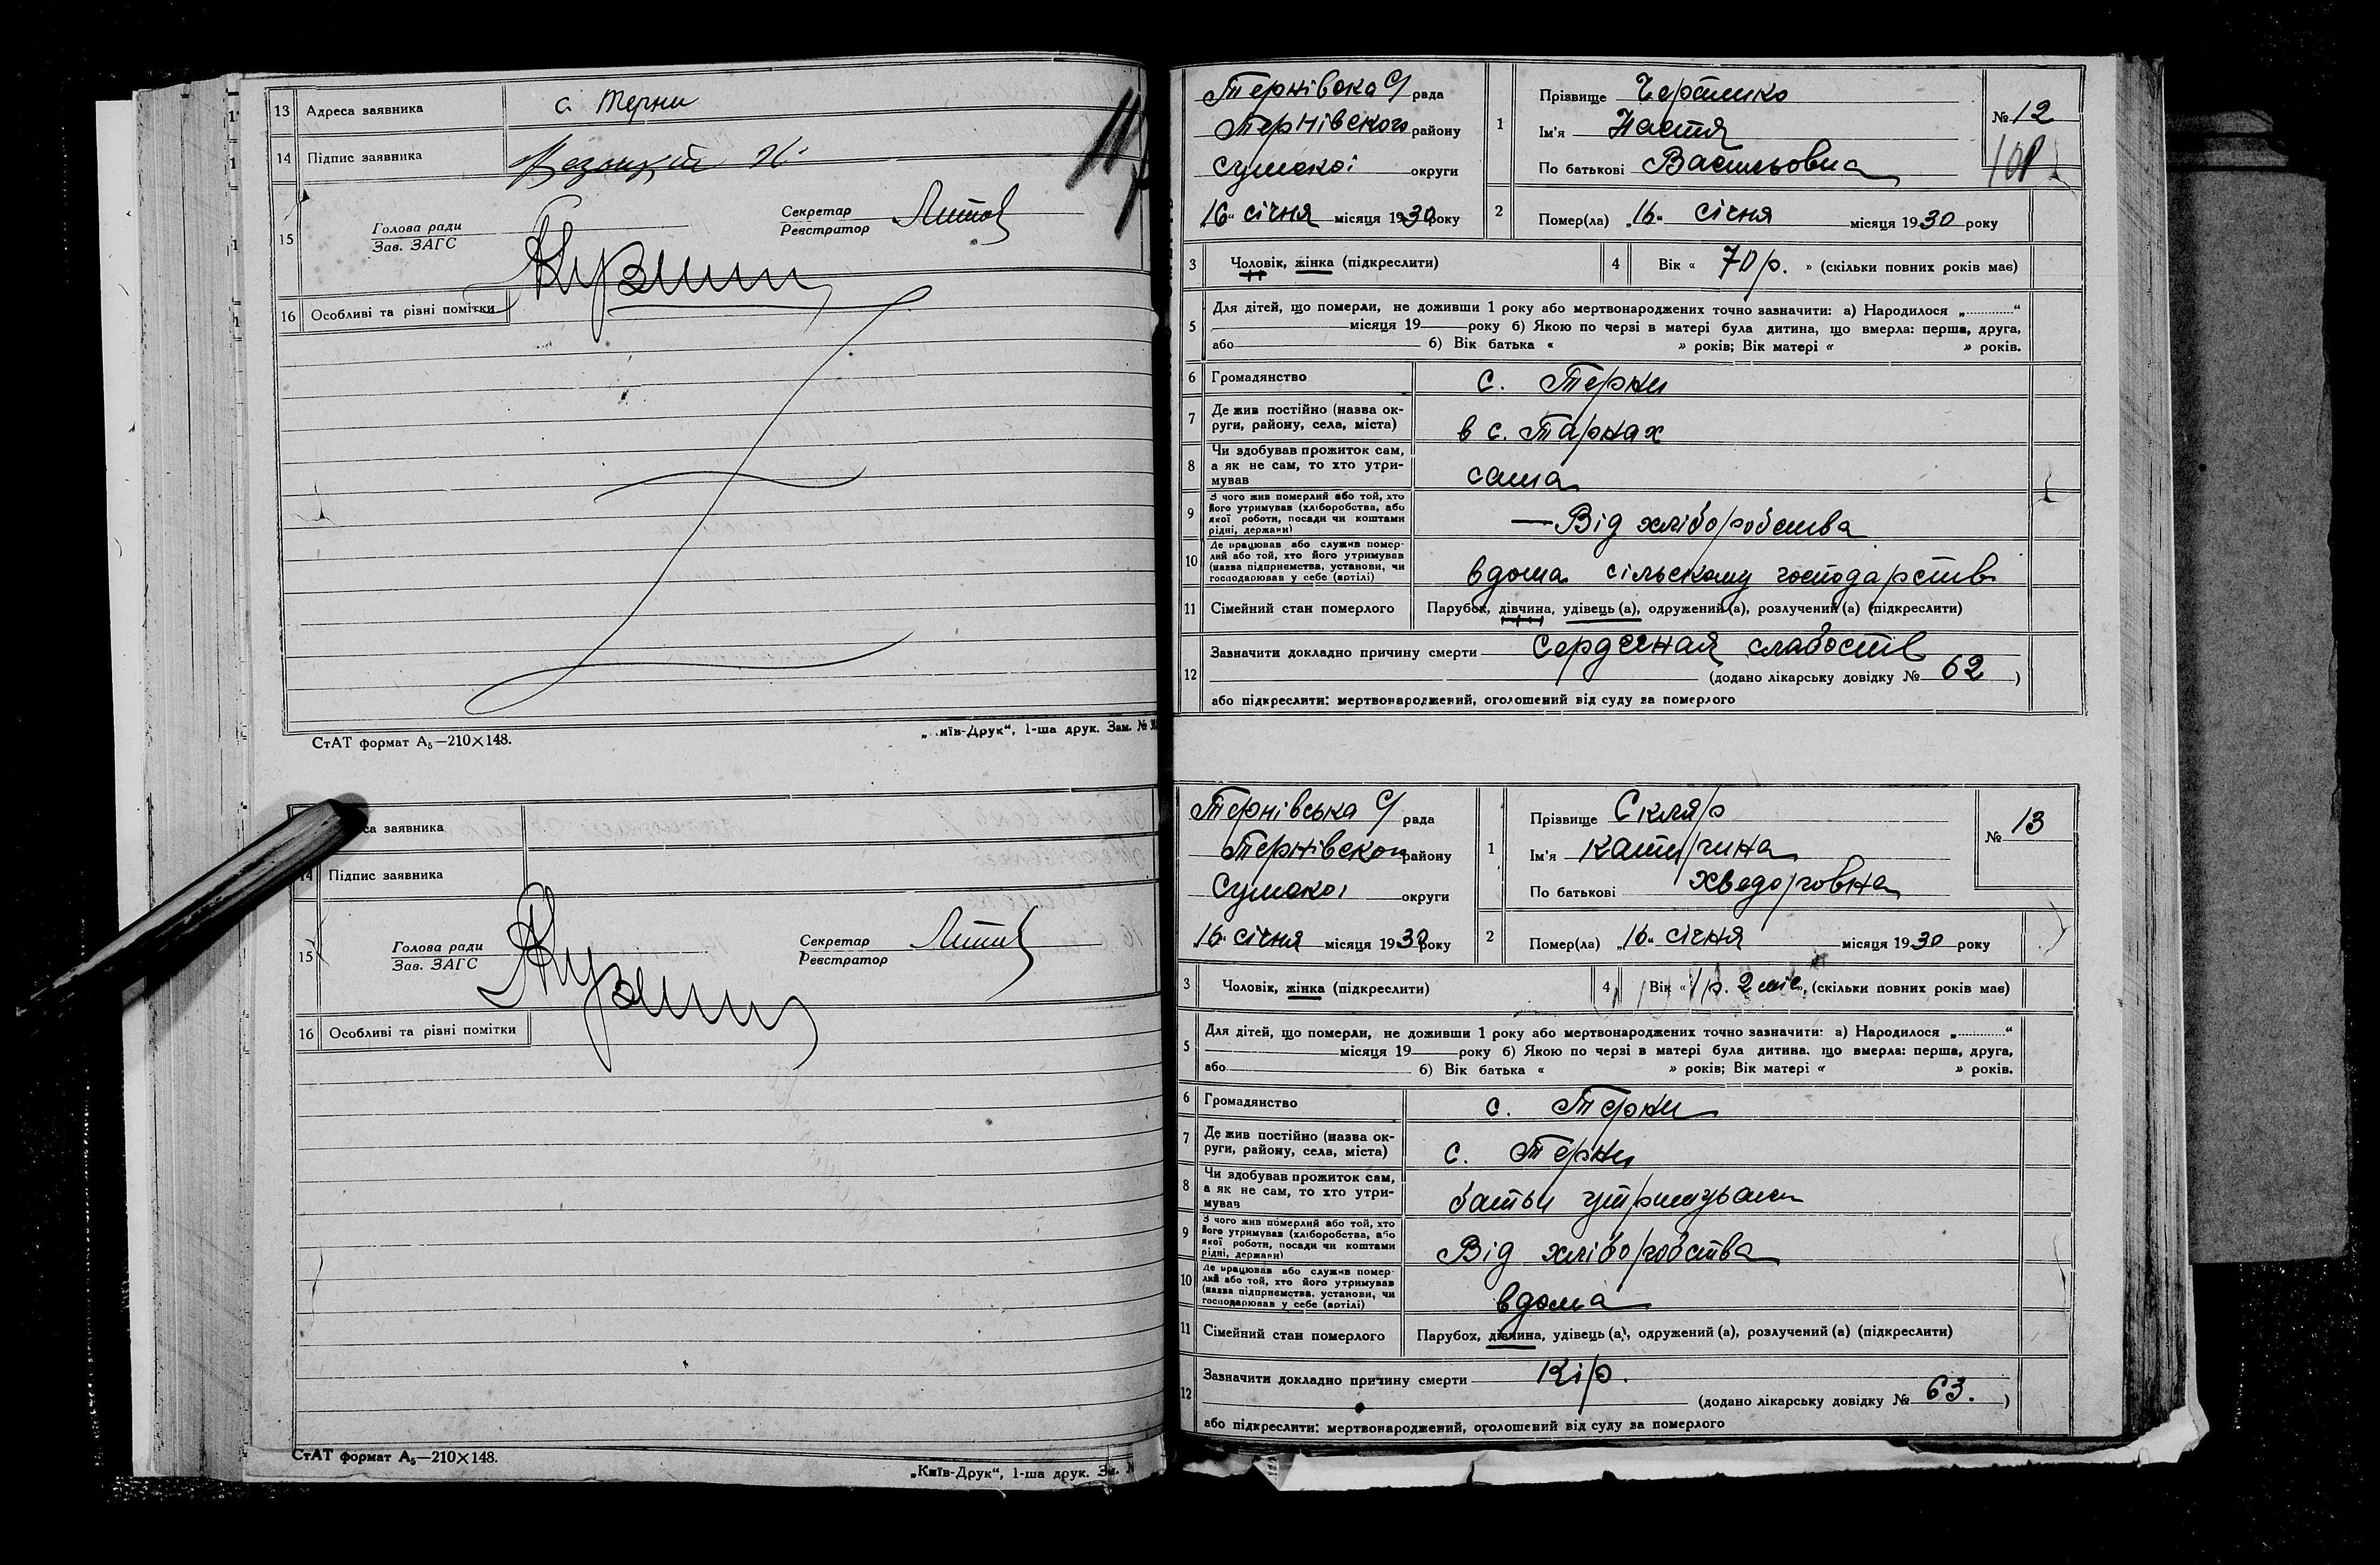 13 Адреса заявника с. Терни
14 Підпис заявника
15 Голова ради
Зав. ЗАГС
Секретар
Реєстратор
16 Особливі та різні помітки
СтАТ формат А5—210×148.
„Київ-Друк“, 1-ша друк. Зам. №
са заявника
14 Підпис заявника
15 Голова ради
Зав. ЗАГС
Секретар
Реєстратор
16 Особливі та різні помітки
СтАТ формат А5—210×148.
„Київ-Друк“, 1-ша друк. Зм.
Тернівска С/ рада
Тернівского району
Сумскої округи
„16“ січня місяця 1930 року
1 Прізвище
Ім'я Настя
По батькові Васильовна
№ 12
2 Помер(ла) „16“ січня місяця 1930 року
3 Чоловік, жінка (підкреслити)
4 Вік « 70 р. » (скільки повних років має)
5 Для дітей, що померли, не доживши 1 року або мертвонароджених точно зазначити: а) Народилося „............“
місяця 19 року б) Якою по черзі в матері була дитина, що вмерла: перша, друга,
або б) Вік батька « » років; Вік матері « » років.
6 Громадянство с. Терни
7 Де жив постійно (назва ок-
руги, району, села, міста) в с. Тернах
8 Чи здобував прожиток сам,
а як не сам, то хто утри-
мував сама
9 З чого жив померлий або той, хто
його утримував (хліборобства, або
якої роботи, посади чи коштами
рідні, держави) — Від хліборобства
10 Де працював або служив помер-
лий або той, хто його утримував
(назва підприємства, установи, чи
господарював у себе (артілі) вдома сільскому господарстві
11 Сімейний стан померлого Парубок, дівчина, удівець (а), одружений (а), розлучений (а) (підкреслити)
12 Зазначити докладно причину смерти Сердечная слабость
(додано лікарську довідку № 62 )
або підкреслити: мертвонароджений, оголошений від суду за померлого
Тернівська С/ рада
Тернівског району
Сумскої округи
„16“ січня місяця 1930 року
1 Прізвище Скляр
Ім'я Катирина
По батькові Хведоровна
№ 13
2 Помер(ла) „16“ січня місяця 1930 року
3 Чоловік, жінка (підкреслити)
4 Вік « 1 р. 2 міс. » (скільки повних років має)
5 Для дітей, що померли, не доживши 1 року або мертвонароджених точно зазначити: а) Народилося „............“
місяця 19 року б) Якою по черзі в матері була дитина, що вмерла: перша, друга,
або б) Вік батька « » років; Вік матері « » років.
6 Громадянство с. Терни
7 Де жив постійно (назва ок-
руги, району, села, міста) с. Терни
8 Чи здобував прожиток сам,
а як не сам, то хто утри-
мував
9 З чого жив померлий або той, хто
його утримував (хліборобства, або
якої роботи, посади чи коштами
рідні, держави) Від хліборобства
10 Де працював або служив помер-
лий або той, хто його утримував
(назва підприємства, установи, чи
господарював у себе (артілі) вдома
11 Сімейний стан померлого Парубок, дівчина, удівець (а), одружений (а), розлучений (а) (підкреслити)
12 Зазначити докладно причину смерти Кір.
(додано лікарську довідку № 63. )
або підкреслити: мертвонароджений, оголошений від суду за померлого